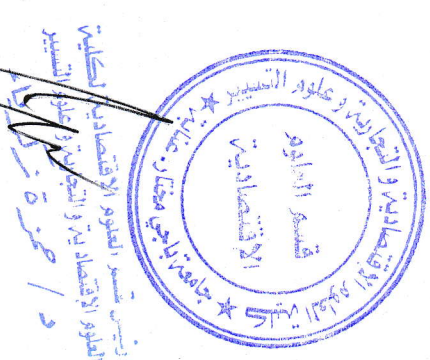 كلية العلوم الاقتصادية و التجارية و علوم التسيير
جامعة باجي مختار - عنابة
قسم العلوم
الاقتصادية
رئيس قسم العلوم الاقتصادية لكلية
العلوم الاقتصادية و التجارية و علوم التسيير
د / حمزة